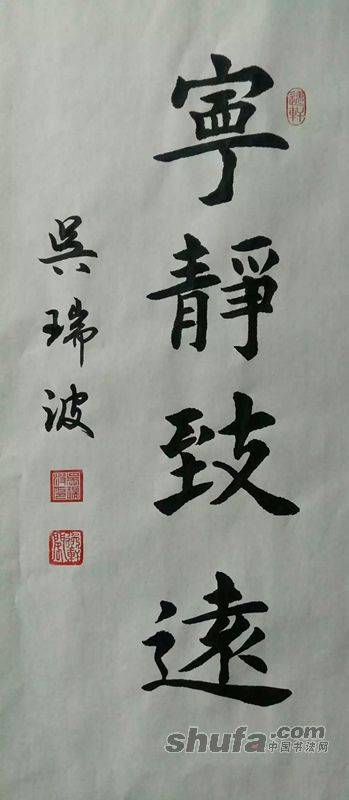 寧靜致遠
吳瑞波
shufa.com
中国书法网